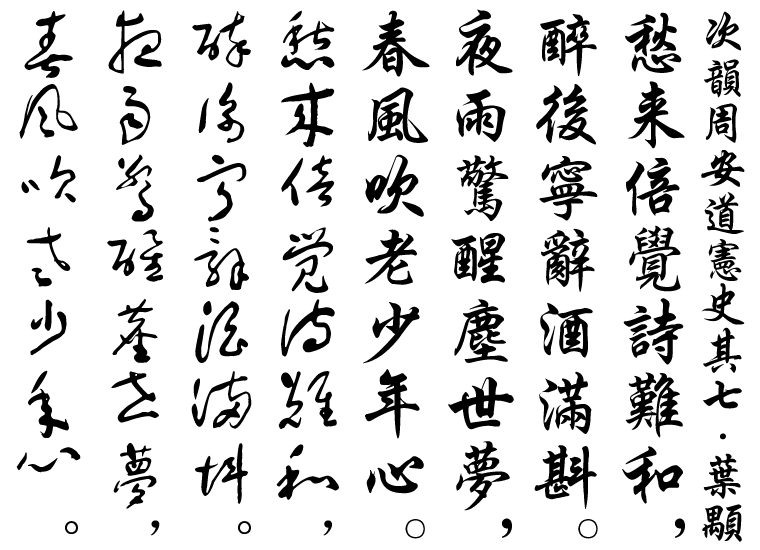 次韻周安道憲史其七·葉顒
愁来倍覺詩難和，
醉後寧辭酒滿斟。
夜雨驚醒塵世夢，
春風吹老少年心。
愁来倍覺詩難和，
醉後寧辭酒滿斟。
夜雨驚醒塵世夢，
春風吹老少年心。